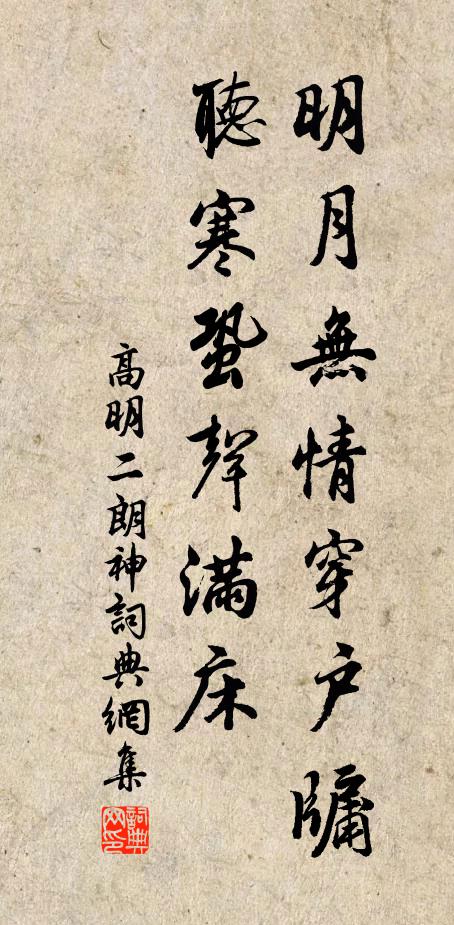 明月無情穿戶牖
聽寒蛩聲滿床
高明二朗神詞典網集
詞典网印